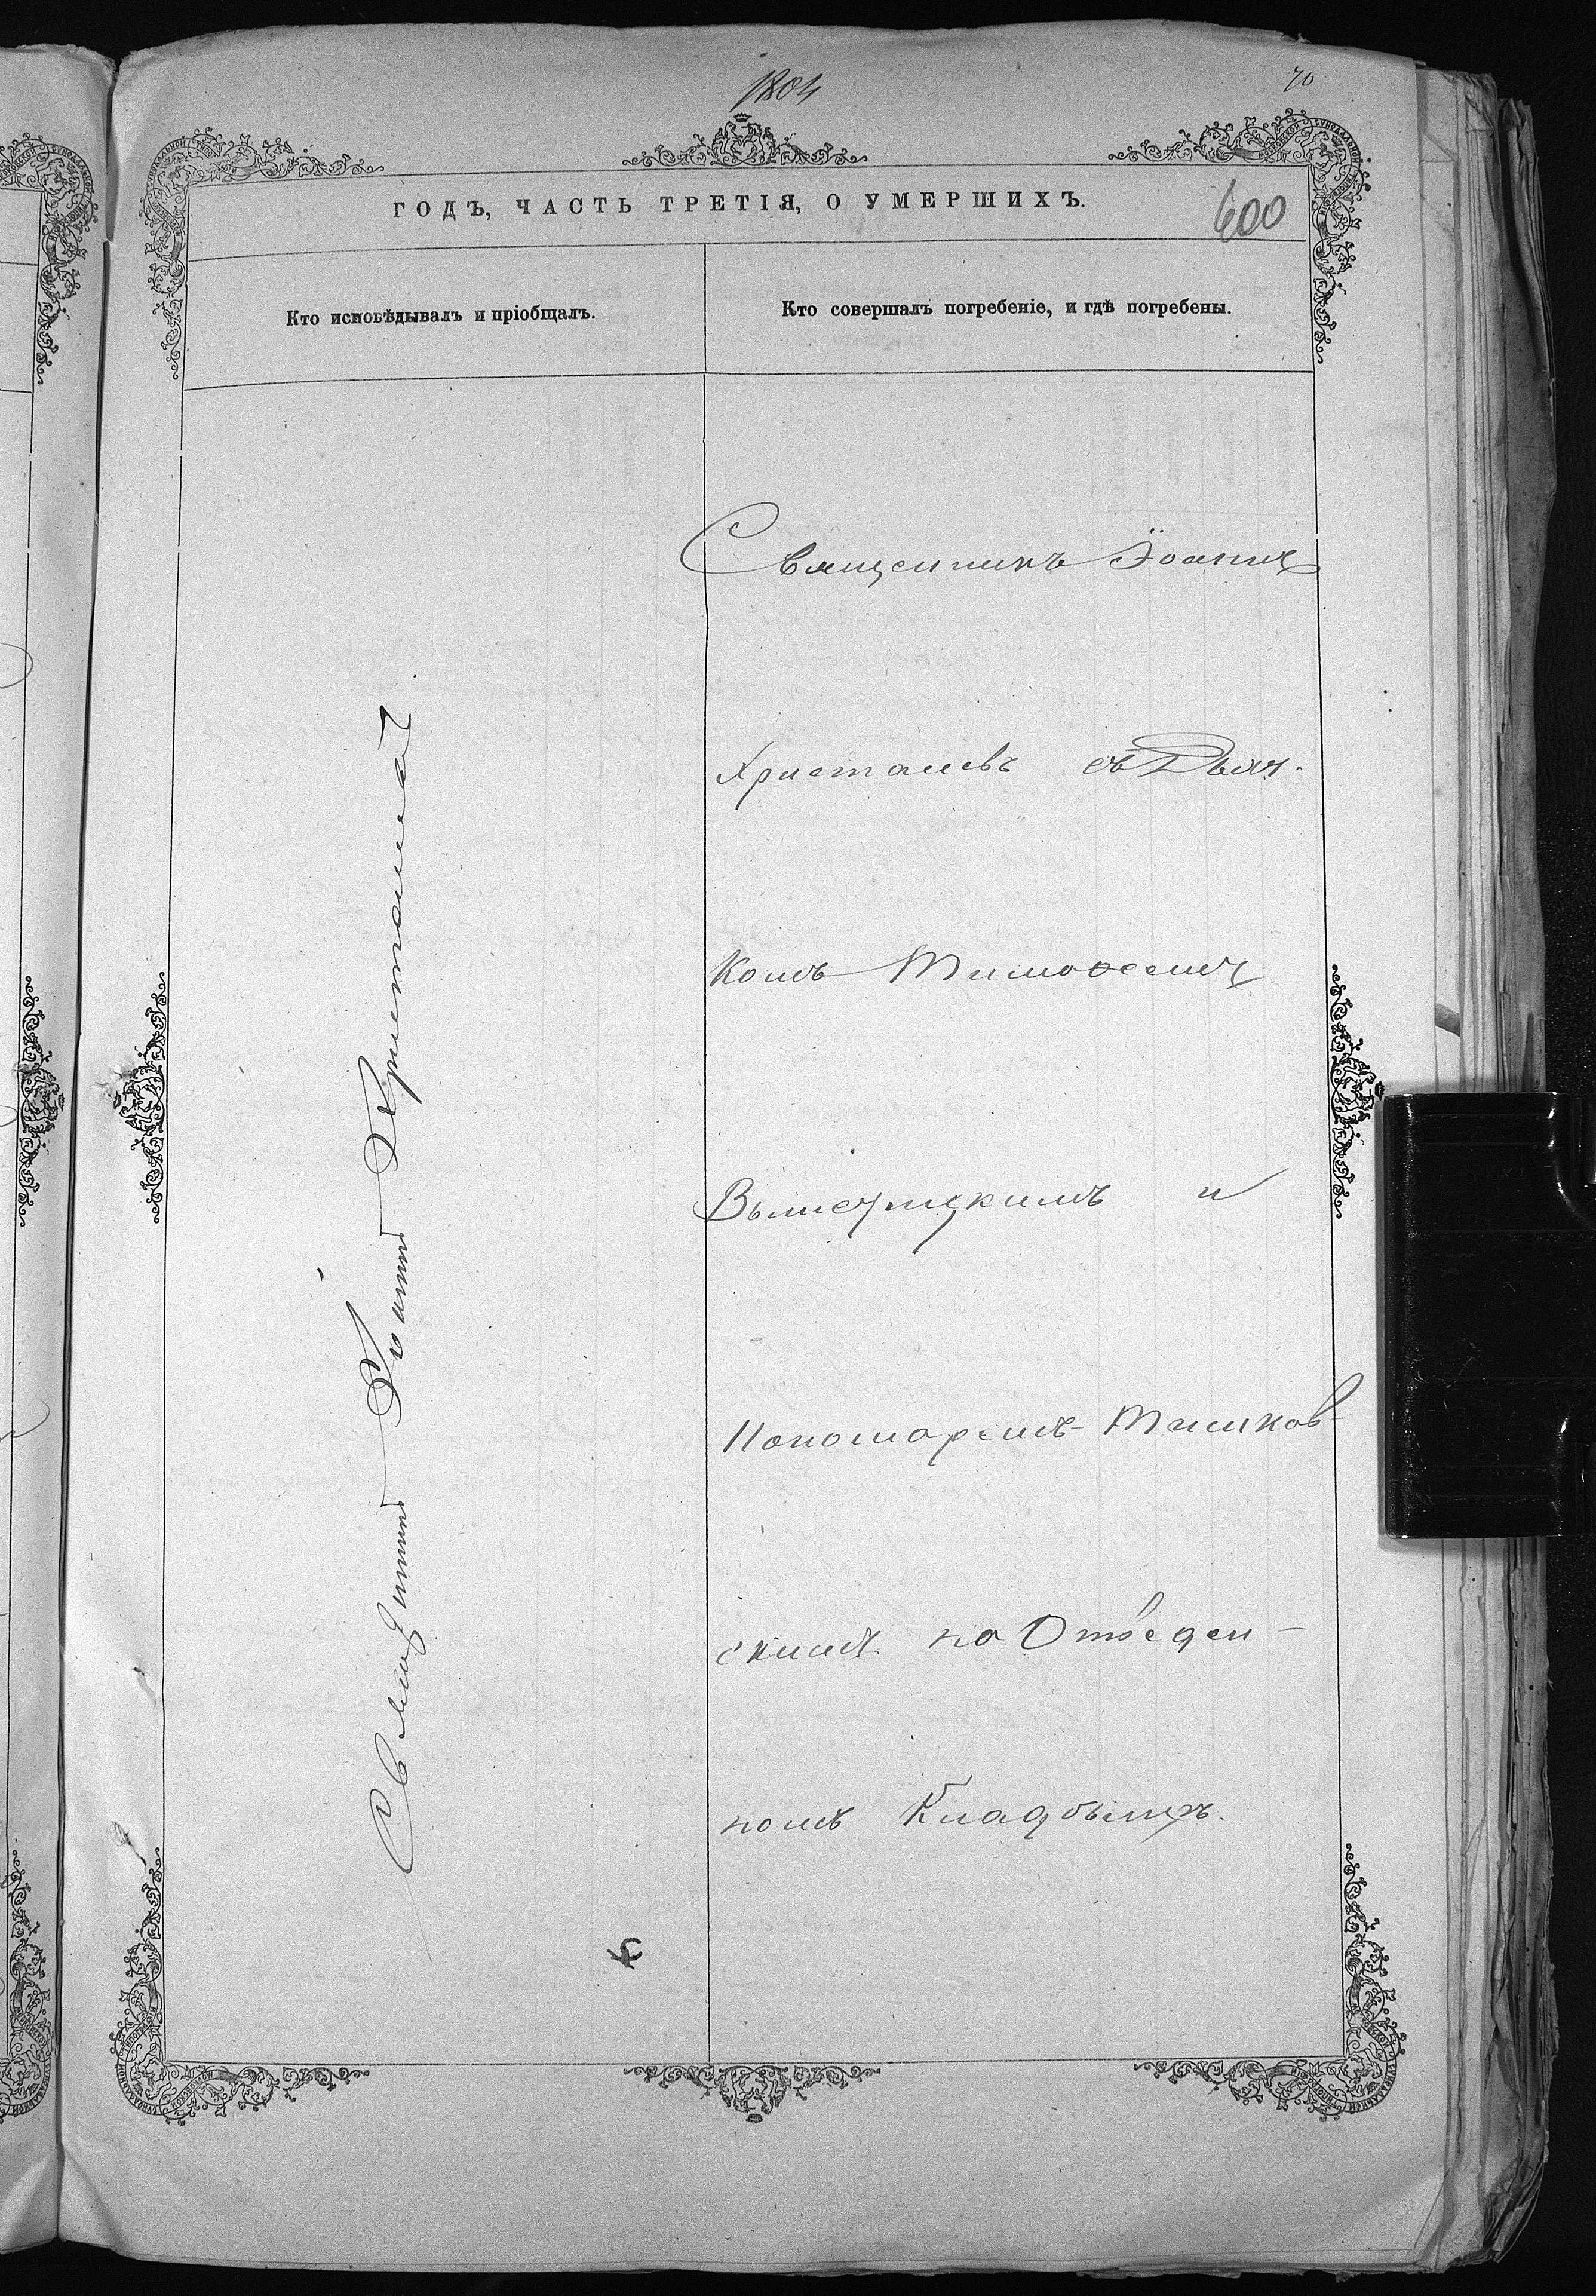 1804
70
ГОДЪ, ЧАСТЬ ТРЕТІЯ, О УМЕРШИХЪ.
600
Кто исповѣдывалъ и пріобщалъ.
Кто совершалъ погребеніе, и гдѣ погребены.
Священникъ Іоаннъ
Священникъ Іоаннъ
съ Дьяч.
комъ Тимоѳеемъ
и
Пономаремъ Тишков
скимъ на Отведен-
номъ Кладбыщѣ.